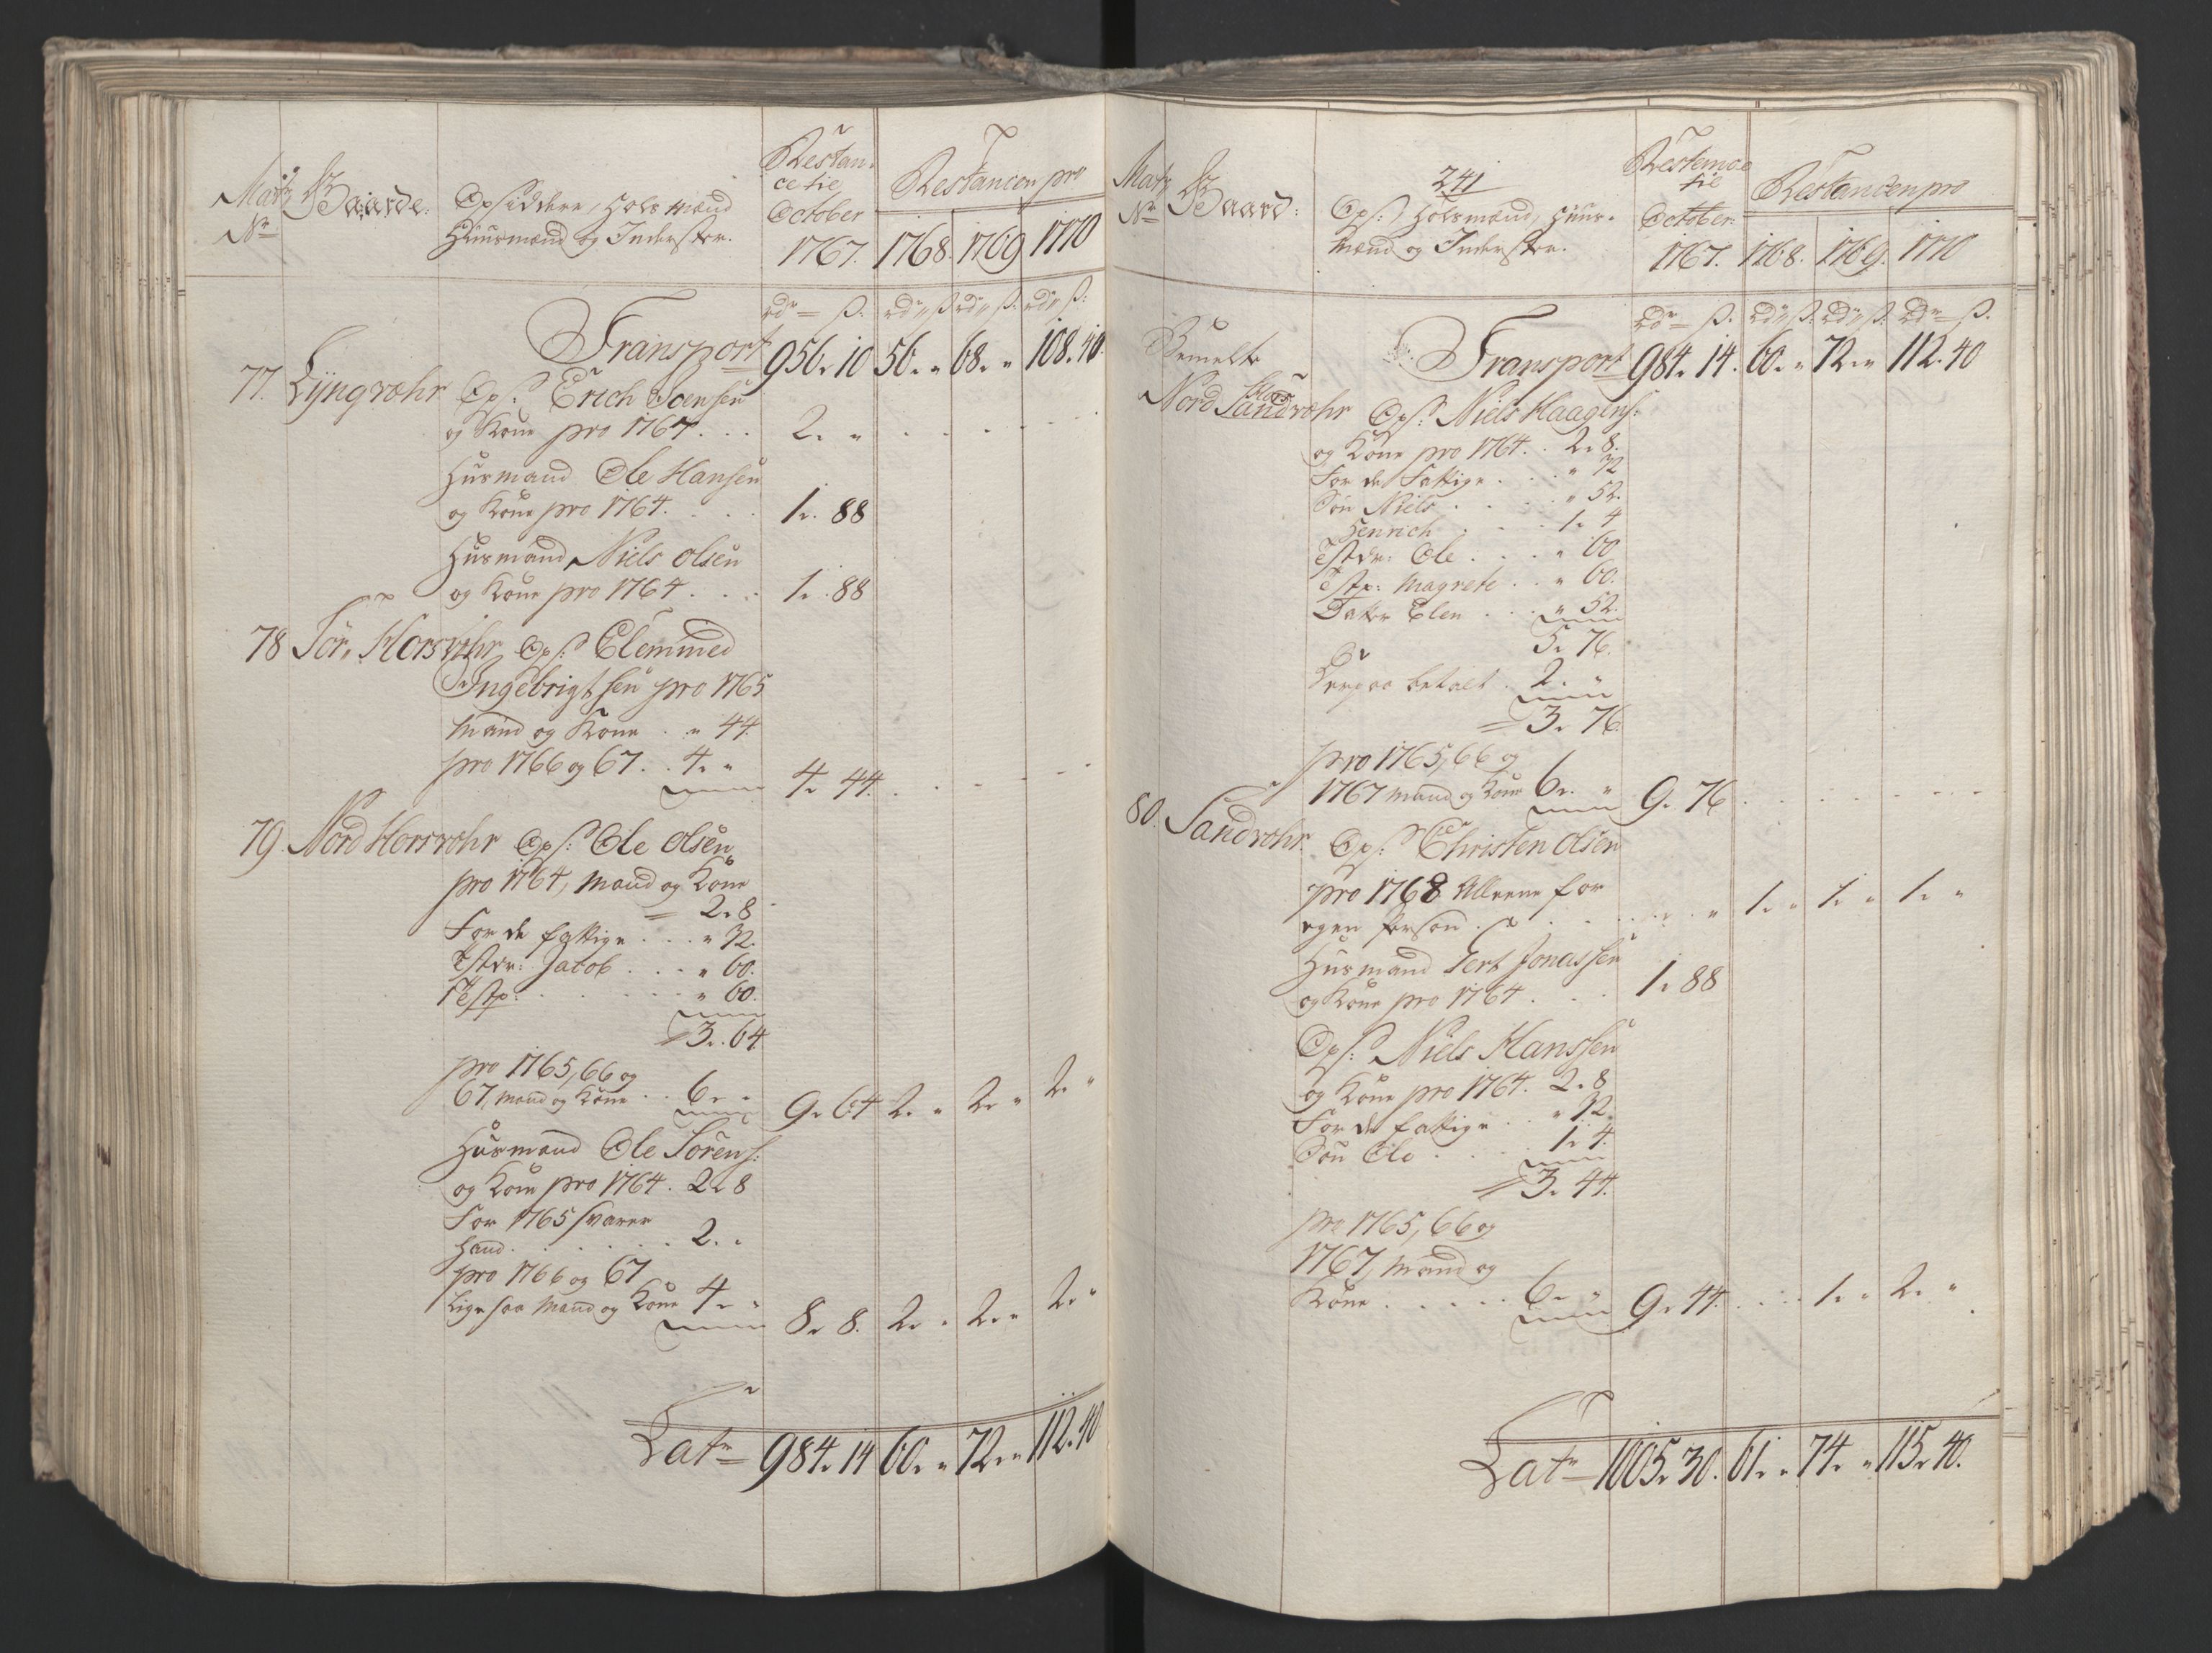 Matr
No
Gaarde:
Opsiddere, Hols Mænd
Huusmænd og Inderster.
Restan-
ce tie
October
1767.
Restancen pro
1768. 1769 1770
rdr ß. rdr ß rdr ß. rdr ß:
Transport 956. 10 56. " 68. " 108. 40.
77. Lyngvæhr Ops: Erich Joensen
og Kone pro 1767. . . 2. " . . . . .
Husmand Ole Hansen
og Kone pro 1764. . . . 1. 88
Husmand Niels Olsen
og Kone pro 1764. . . . 1. 88
78 Sør. Horsvæhr Ops: Clemmed
Ingebrigtsen pro 1765
Mand og Kone . " 44.
pro 1766 og 67. . 4. " 4. 44. . . . . .
79. Nord Horsvæhr Ops: Ole Olsen
pro 1764, Mand og Kone
= 2. 8
For de fattige . . . " 32.
Tstdr: Jacob . . . " 60.
Testp: . . . . . . " 60.
3. 64.
pro 1765, 66 og
67, Mand og Kone . . 6. " 9. 64 2. " 2. " 2. "
Husmand Ole Sørens:
og Kone pro 1764. 2. 8
For 1765 svarer
hand . . . . . . 2. "
pro 1766 og 67
ligesaa Mand og Kone 4. " 8. 8. 2. " 2. " 2. "
Latr 984. 14 60. " 72. " 112. 40
Matr
No
Gaard:
241
Ops: Holsmænd, Huus-
mænd og Inderster.
Restance
tie
October:
1767.
Restancen pro
1768. 1769. 1770
Rdr ß. Rdr ß. Rdr ß. Rdr ß.
Transport 984. 14. 60. " 72. " 112. 40
Bemelte
Nord Sandvæhr
Hors
Ops: Niels Haagens:
og Kone pro 1764. . 2. 8.
For de Fattige . . . " 32
Søn Niels . . . . . " 52.
Henrich . . . . 1. 4
Tstdr: Ole . . . . " 60
Testp: Magrete . . " 60.
Datter Elen . . . " 52.
5. 76.
Herpaa betalt . 2. "
= 3. 76.
pro 1765, 66 og
1767 Mand og Kone 6. " 9. 76 . . . . . . .
80. Sandvæhr. Ops: Christen Olsen
pro 1768 Alleene for
egen Person . . . . . . . " 1. " 1. " 1. "
Husmand Tert Jonassen
og Kone pro 1764. . . . 1. 88
Ops: Niels Hanssen
og Kone pro 1764. 2. 8
For de fattige . . " 32.
Søn Ole . . . . . 1. 4.
= 3. 44.
pro 1765, 66 og
1767, Mand og
Kone . . . . . . 6. " 9. 44. . . . 1. " 2. "
Latr 1005. 30. 61. " 74. " 115. 40.